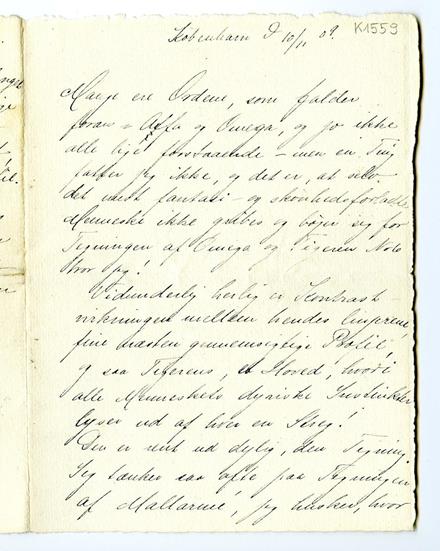 København D 10/11 09.
K1559
Mange ere Ordene, som falder
foran „Alfa og Omega, og jo ikke
alle lige forstaaende – men en Ting
fatter jeg ikke, og det er, at selv
det mest fantasi- og skønhedsforladte
Menneske ikke gribes og bøjer sig for
Tegningen af Omega og Tigeren
tror jeg!
Vidunderlig herlig er Kontrast-
virkningen mellem hendes
fine næsten gennemsigtige Profil,
og saa Tigerens, et Hoved, hvori
alle Menneskets dyriske Instinkter
lyser ud af hver en Streg!
Den er rent ud dejlig, den Tegning.
Jeg tænker saa ofte paa Tegningen
af Mallarmé, jeg husker, hvor